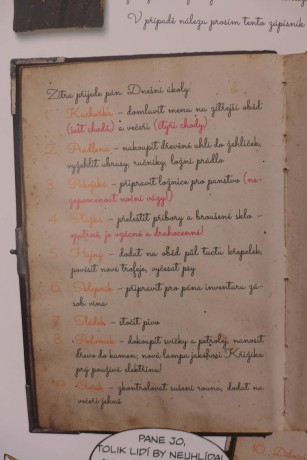 V případě nálezu prosím tento zápisník
Zítra přijede pán. Dnešní úkoly:
1. Kuchařka – domluvit menu na zítřejší oběd
(šest chodů) a večeři (čtyři chody)
2. Pradlena – nakoupit dřevěné uhlí do žehliček,
vyžehlit ubrusy, ručníky, ložní prádlo
3. Pokojská – připravit ložnice pro panstvo (ne-
zapomenout noční vázy!)
4. – přeleštit příbory a broušené sklo –
opatrně, je vzácné a drahocenné!
5. Hajný – dodat na oběd půl tuctu křepelek,
pověsit nové trofeje, vyčesat psy
6. Sklepník – připravit pro pána inventuru zá-
sob vína
7. Sládek – stočit pivo
8. – dokoupit svíčky a petrolej, nanosit
dřevo do kamen; nová lampa jakéhosi Křižíka
prý používá elektřinu!
– zkontrolovat sušení rouna, dodat na
večeři jehně
PANE JO,
TOLIK LIDÍ BY NEUHLÍDAL